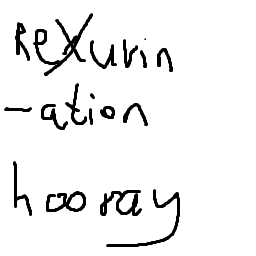 Rexurin
-ation
hooray